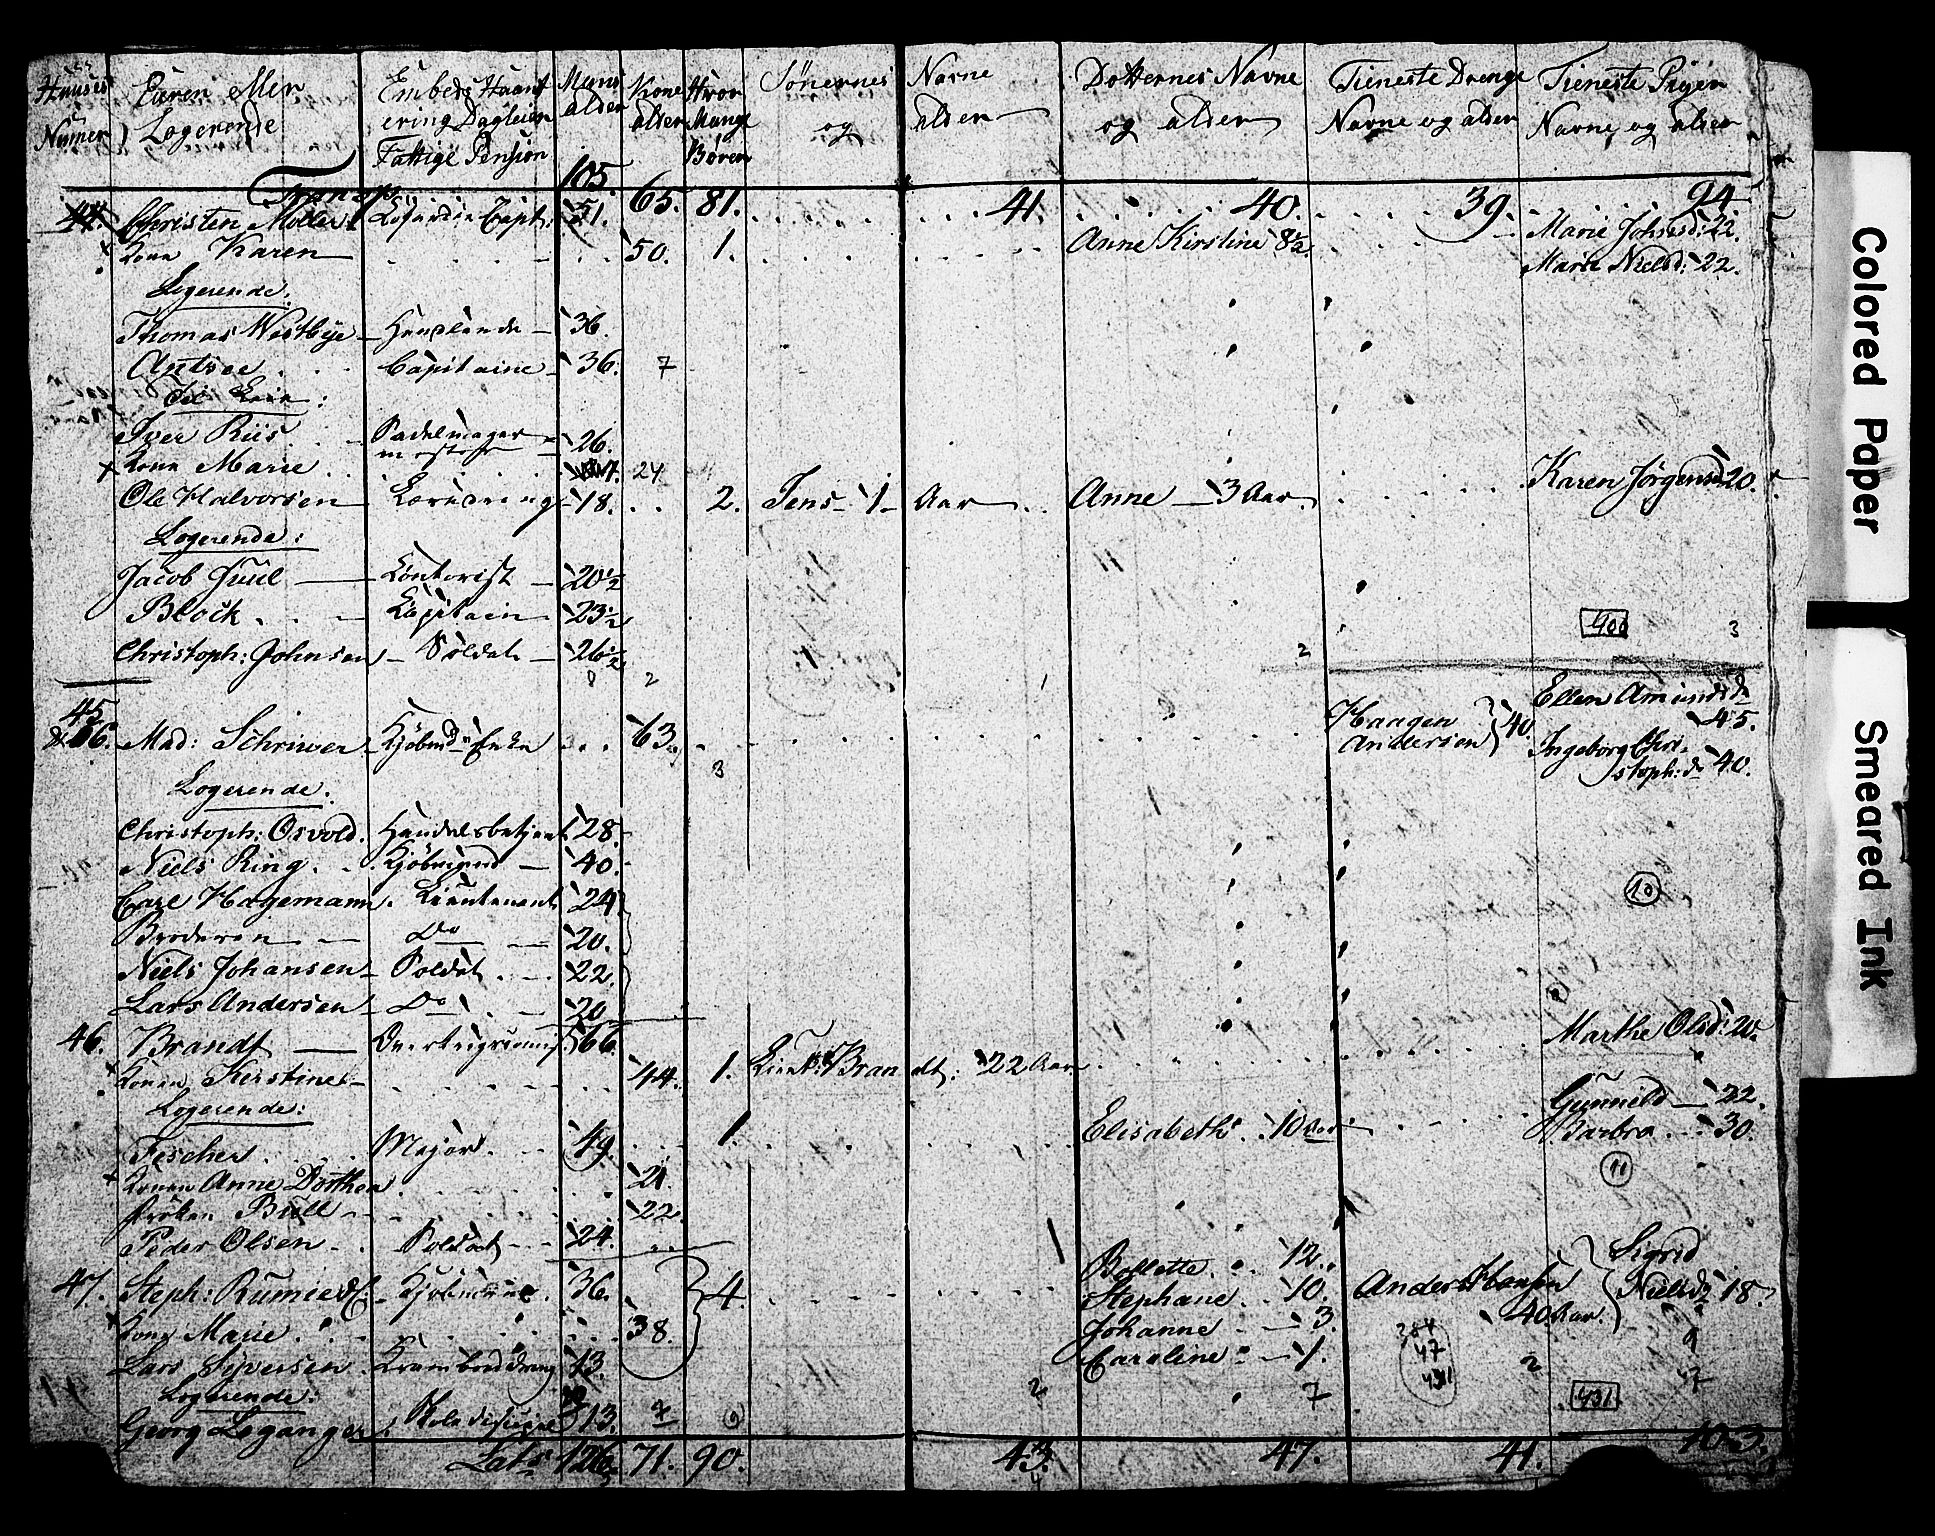 Huuses Numer
Eieren eller Logerende
Embede Haandtering Dagleier Fattige Pension
Mans alder
Kone alder
Hvor Mange Børen
Sønernes Navne og alder
Dotternes Navne og alder
Tieneste Drenge Navne og alder
Tieneste Piger Navne og alder
Transp. 105. 65. 81. 41. 40. 39. 94
44. Christen Møller Capt. 51. Marie Johnsd: 22.
Kone Karen 50. 1. Anne Kirstine 8½ Marie Nielsd: 22.
Logerende:
Thomas Westbye Handlende 36.
Capitaine 36. 7
Til Leie:
Iver Riis Sadelmager mester 26.
Kone Marie 24
Ole Halvorsen 18. 2. Jens 1 Aar Anne 3 Aar Karen Jørgensd 20.
Logerende:
Jacob Juul Contorist 20½
Block Capitain 23½ 400 3
Christoph: Johnsen Soldat 26½ 2
8 2
45 & 86. Mad: Schriwer Kjøbmds Enke 63. Haagen Andersen 40. Ellen Amundsd 45.
Ingeborg Christoph: d 40.
3
Logerende:
Christoph: Osvold Handelsbetjent 28
Niels Ring Kjøbmand 40.
Carl Hagemann Lieutenant 24 10
Do 20.
Niels Johansen Soldat 22.
Lars Andersen Do 20
46. Brandt 66. Marthe Olsd: 20.
Konen Kirstine 44. 1. Lieut: Brandt: 22 Aar
Logerende: Gunnild 22.
Fischer Major 49. 1. Elisabeth 10 Aar Barbra 30.
Konen Anne Dorthea 21 11
Frøken Büll 22.
Peder Olsen Soldat 24.
47. Steph: 36. 4. Bollette 12. Anders Hansen 40 Aar. Sigrid Nielsd 18.
Stephane 10.
Kone Marie 38. Johanne 3. 384 9
Lars Syversen Kramboddreng 13. Caroline 1. 47 2
Logerende: 2 7 431 431 47
Georg Leganger 13. 7 9
Lats 126 71. 90. 43. 47. 41. 103.
Colored Paper
Smeared Ink